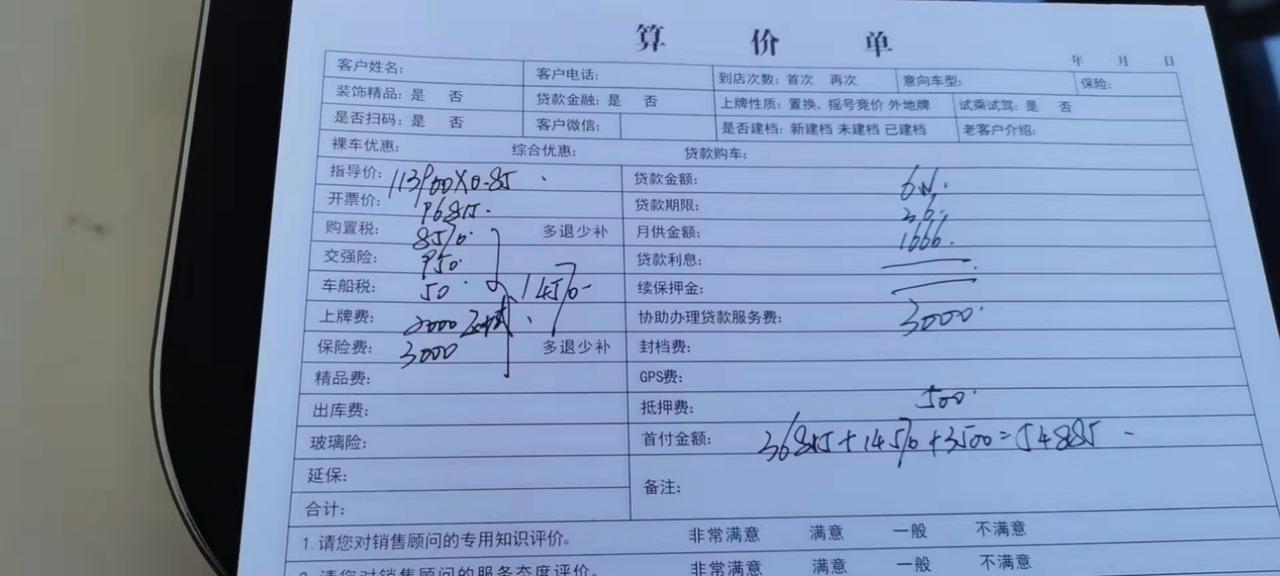 算 价 单
年 月 日
客户姓名： 客户电话： 到店次数：首次 再次 意向车型： 保险：
装饰精品：是 否 贷款金融：是 否 上牌性质：置换、摇号竞价 外地牌 试乘试驾：是 否
是否扫码：是 否 客户微信： 是否建档：新建档 未建档 已建档 老客户介绍：
裸车优惠： 综合优惠： 贷款购车：
指导价：113900X0.85 贷款金额：6W.
开票价：96815. 贷款期限：36.
购置税：8570. 多退少补 月供金额：1666.
交强险：950. 贷款利息：
车船税：50 14570 续保押金：
上牌费：2000 协助办理贷款服务费：3000.
保险费：3000 多退少补 封档费：
精品费： GPS费：
出库费： 抵押费：500.
玻璃险： 首付金额：36815+14570+3500=54885
延保： 备注：
合计：
1.请您对销售顾问的专用知识评价。 非常满意 满意 一般 不满意
2.请您对销售顾问的服务态度评价。 非常满意 满意 一般 不满意